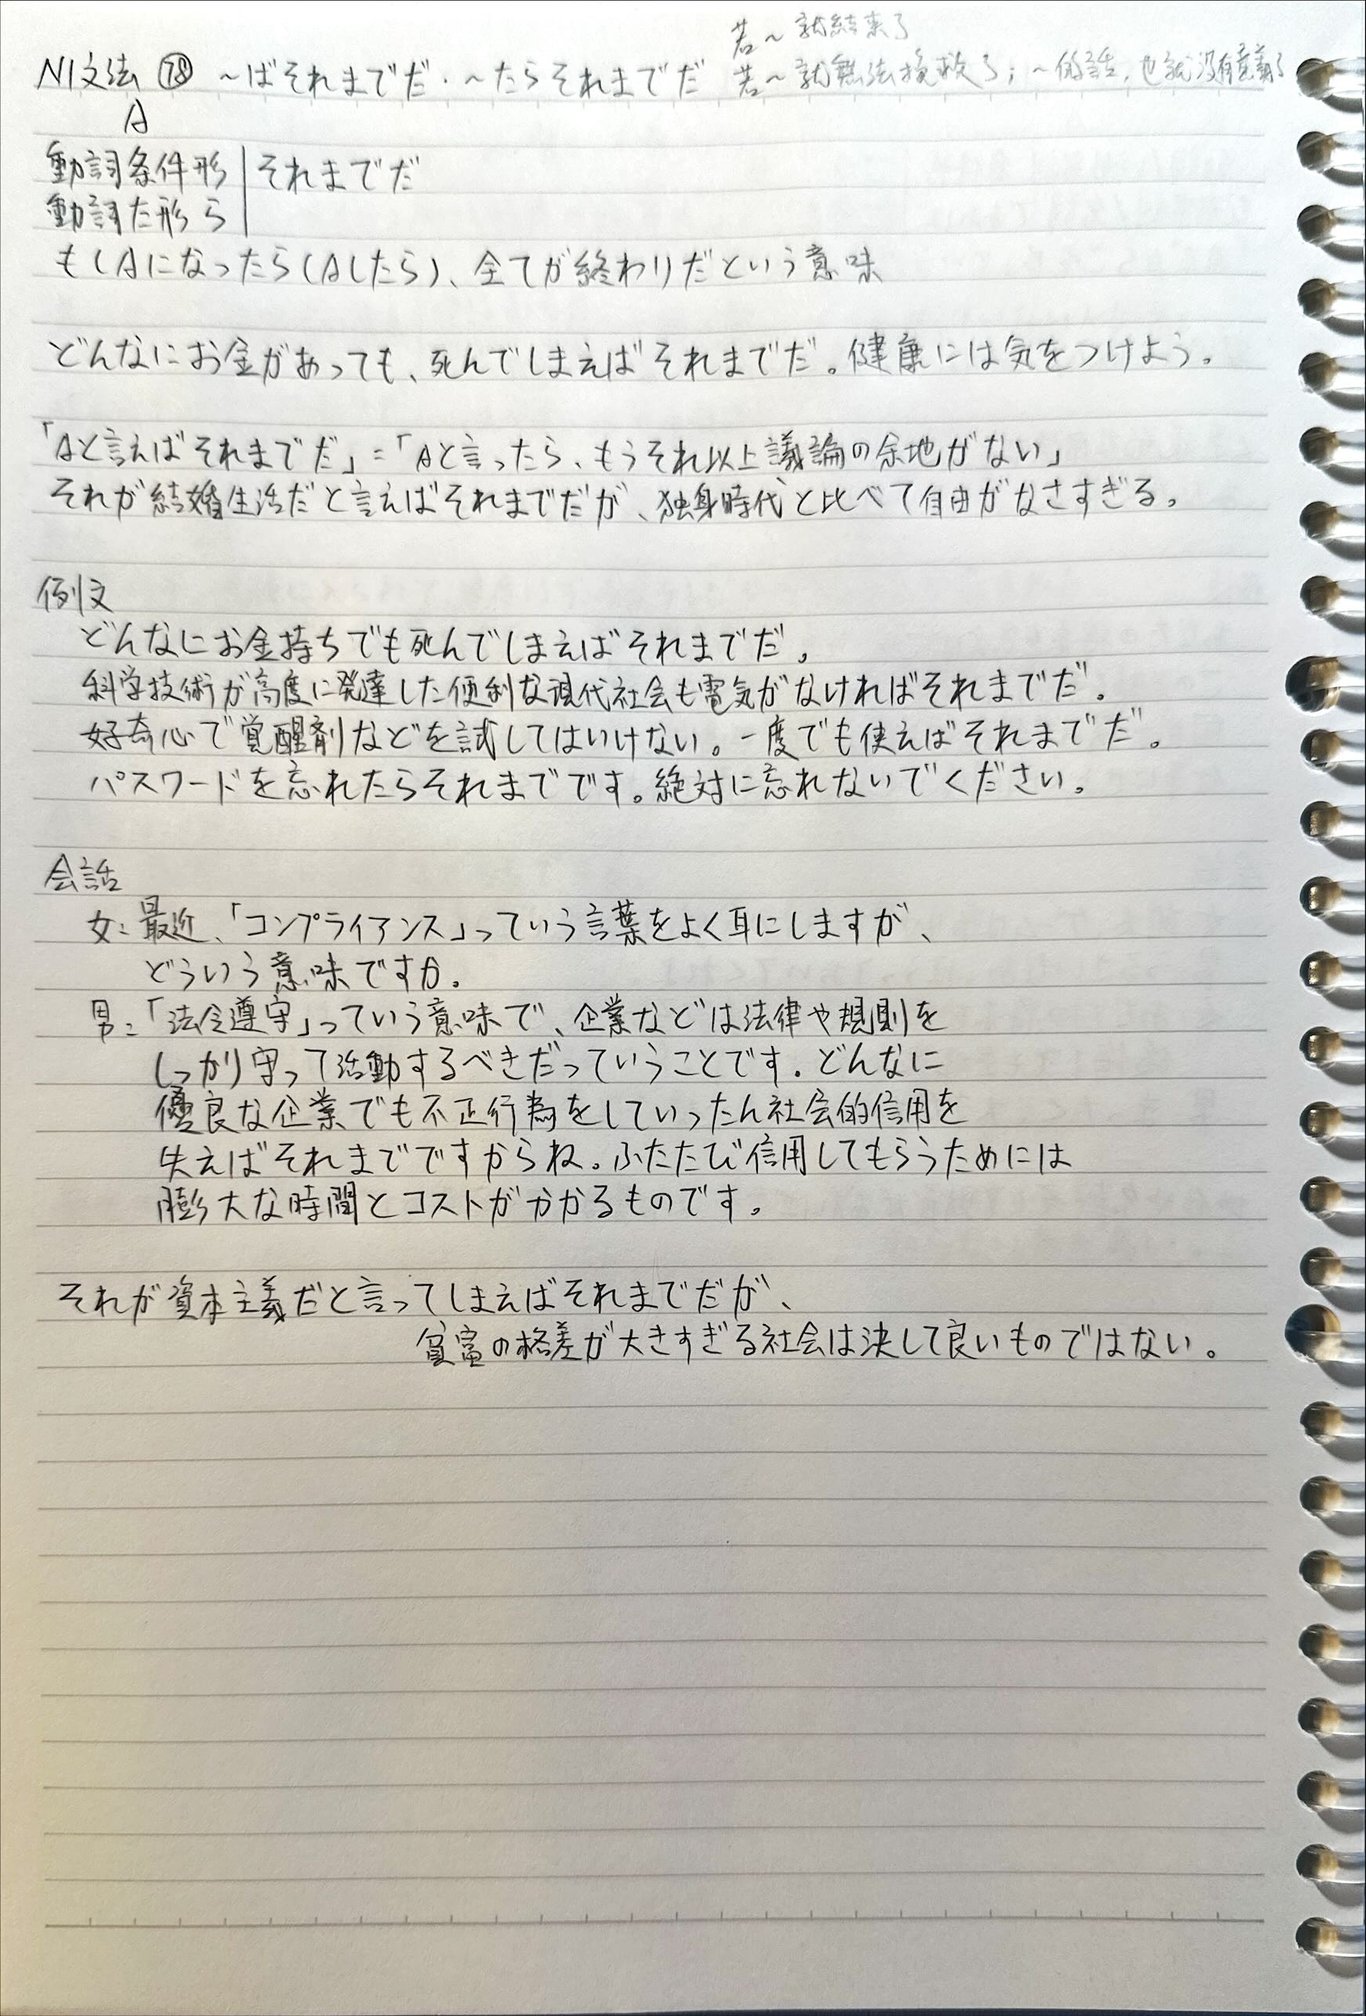 若~就結束了
N1文法 ⑱ ~ばそれまでだ・~たらそれまでだ 若~就無法挽救了;~的話,也就没有意義了
A
動詞条件形 それまでだ
動詞た形ら
もしAになったら(Aしたら)、全てが終わりだという意味
どんなにお金があっても、死んでしまえばそれまでだ。健康には気をつけよう。
「Aと言えばそれまでだ」=「Aと言ったら、もうそれ以上議論の余地がない」
それが結婚生活だと言えばそれまでだが、独身時代と比べて自由がなさすぎる。
例文
どんなにお金持ちでも死んでしまえばそれまでだ。
科学技術が高度に発達した便利な現代社会も電気がなければそれまでだ。
好奇心で覚醒剤などを試してはいけない。一度でも使えばそれまでだ。
パスワードを忘れたらそれまでです。絶対に忘れないでください。
会話
女:最近、「コンプライアンス」っていう言葉をよく耳にしますが、
どういう意味ですか。
男:「法令遵守」っていう意味で、企業などは法律や規則を
しっかり守って活動するべきだっていうことです。どんなに
優良な企業でも不正行為をしていったん社会的信用を
失えばそれまでですからね。ふたたび信用してもらうためには
膨大な時間とコストがかかるものです。
それが資本主義だと言ってしまえばそれまでだが、
貧富の格差が大きすぎる社会は決して良いものではない。